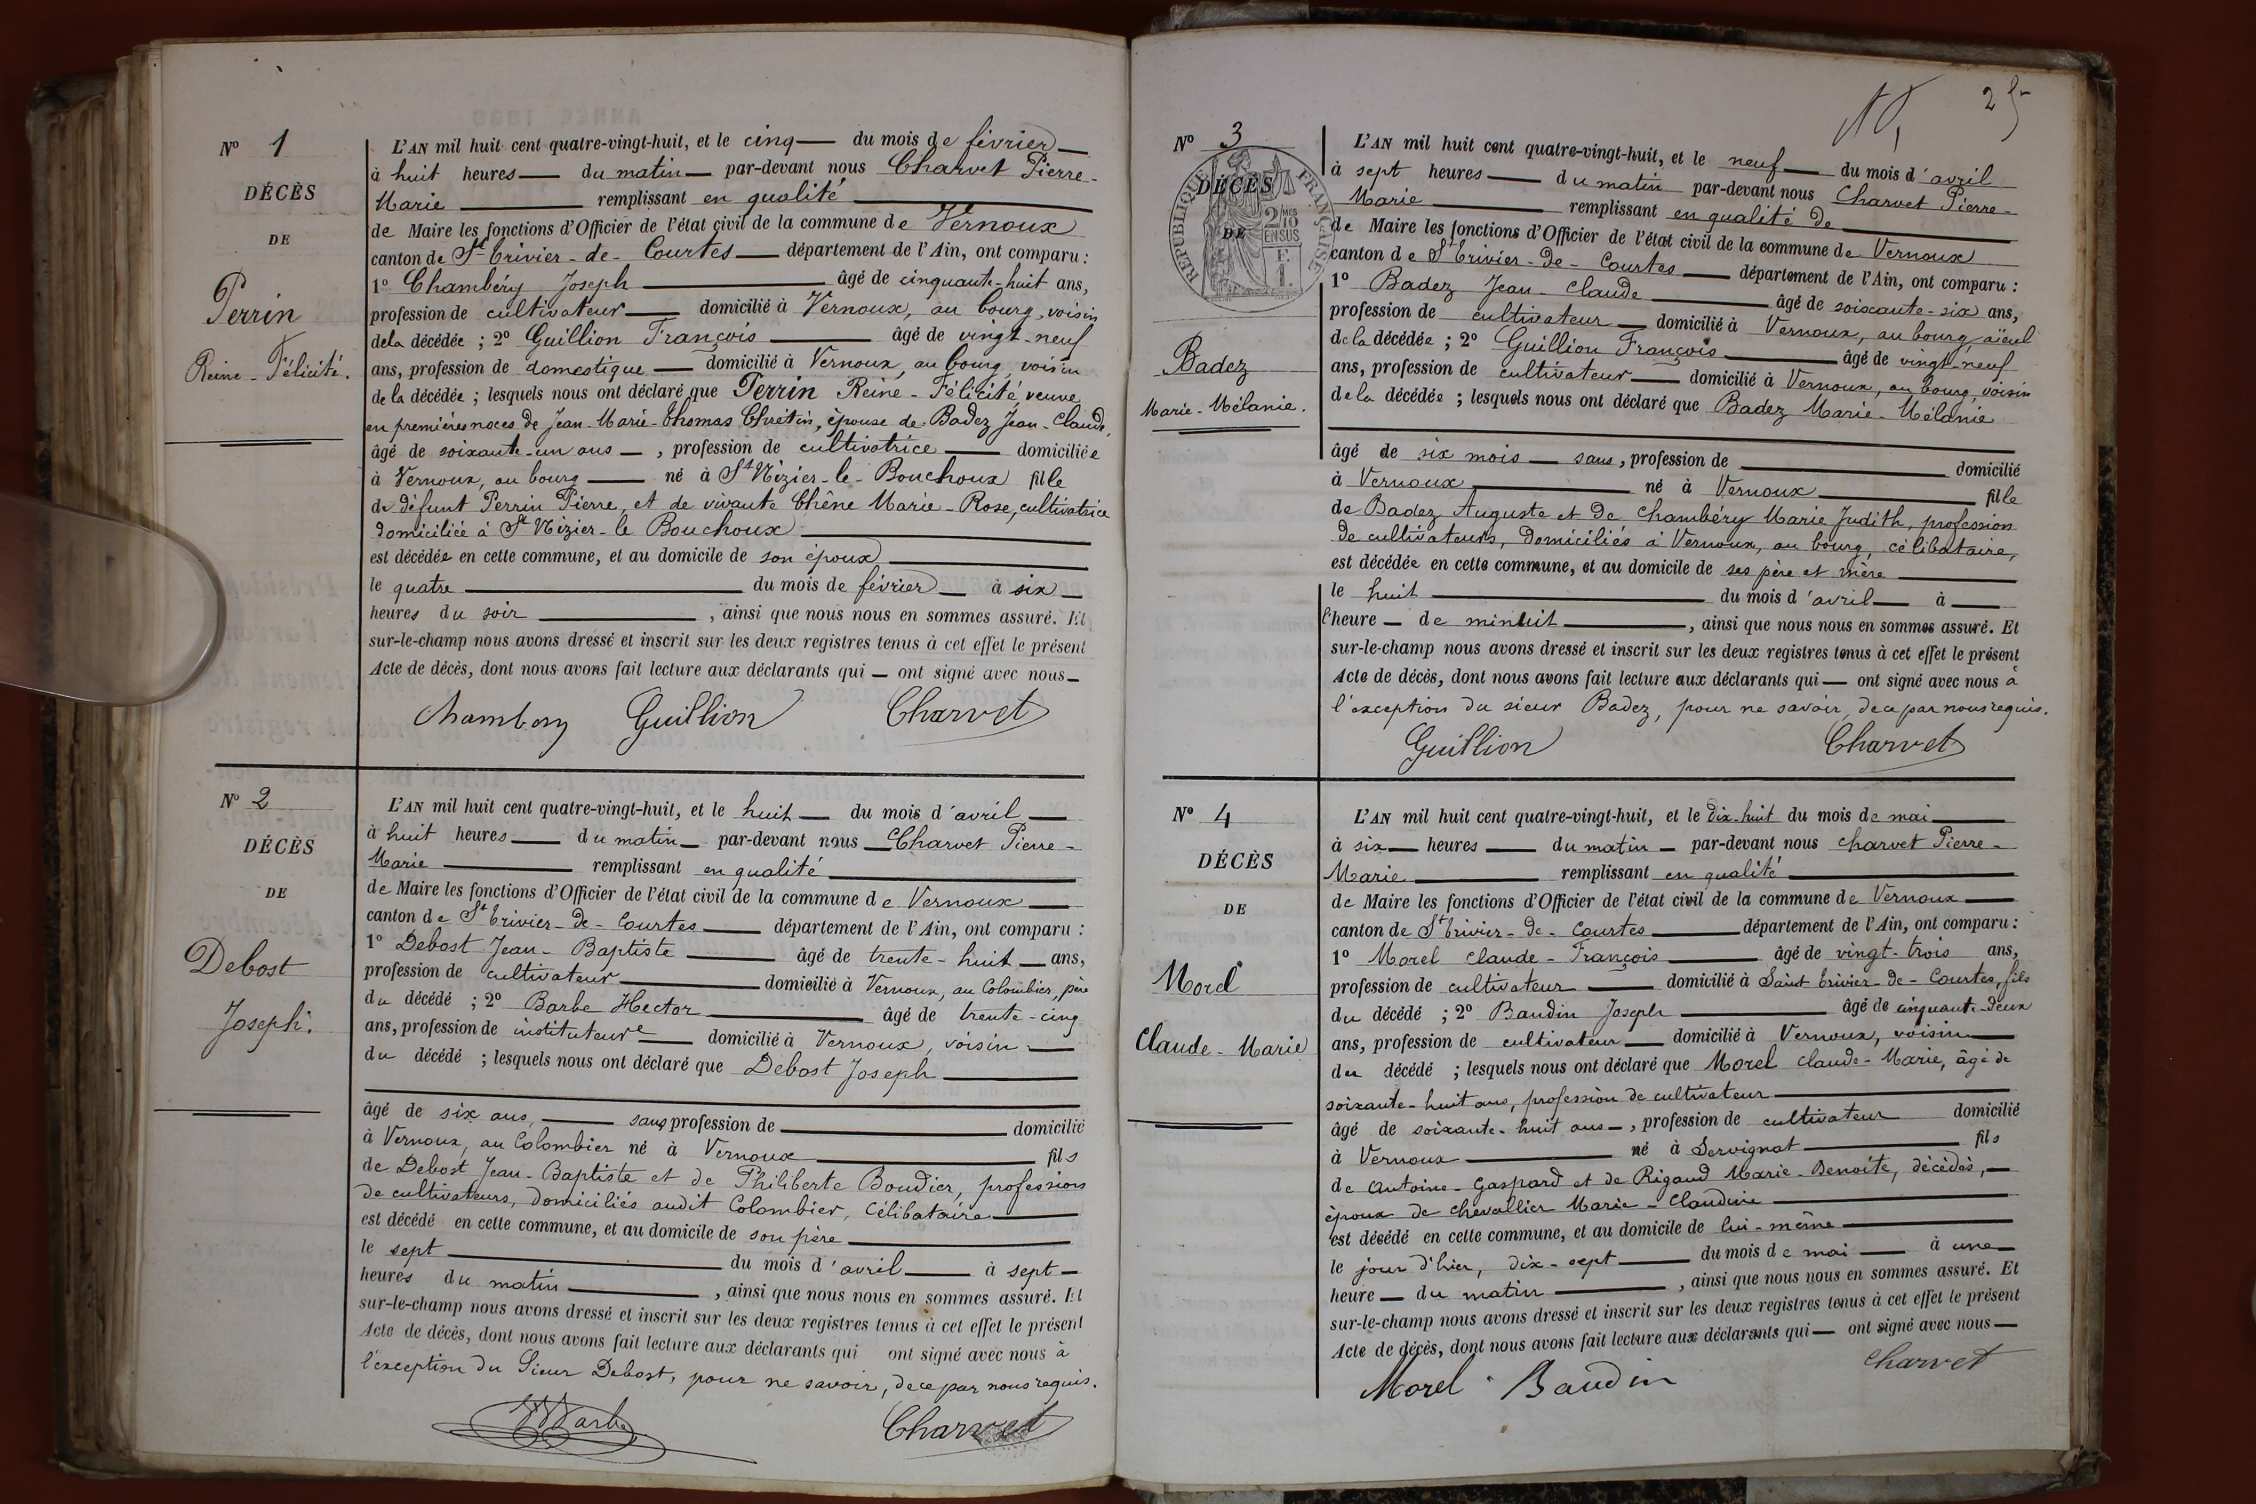 N° 1
DÉCÈS
DE
Perrin
Reine-Félicité.
L'AN mil huit cent quatre-vingt-huit, et le cinq — du mois de février —
à huit heures — du matin — par-devant nous Charvet Pierre-
Marie — remplissant en qualité —
de Maire les fonctions d'Officier de l'état civil de la commune de Vernoux
canton de St Trivier-de-Courtes — département de l'Ain, ont comparu :
1° Chambéry Joseph — âgé de cinquante-huit ans,
profession de cultivateur — domicilié à Vernoux, au bourg, voisin
de la décédée ; 2° Guillion François — âgé de vingt-neuf
ans, profession de domestique — domicilié à Vernoux, au bourg, voisin
de la décédée ; lesquels nous ont déclaré que Perrin Reine-Félicité, veuve
en premières noces de Jean-Marie-Thomas Chrétin, épouse de Badez Jean-Claude,
âgé de soixante-un ans —, profession de cultivatrice — domiciliée
à Vernoux, au bourg — né à St Nizier-le-Bouchoux fille
de défunt Perrin Pierre, et de vivante Chêne Marie-Rose, cultivatrice
domiciliée à St Nizier-le Bouchoux —
est décédée en cette commune, et au domicile de son époux —
le quatre — du mois de février — à six —
heures du soir —, ainsi que nous nous en sommes assuré. Et
sur-le-champ nous avons dressé et inscrit sur les deux registres tenus à cet effet le présent
Acte de décès, dont nous avons fait lecture aux déclarants qui — ont signé avec nous —
Chambery Guillion Charvet
N° 2
DÉCÈS
DE
Debost
Joseph.
L'AN mil huit cent quatre-vingt-huit, et le huit — du mois d'avril —
à huit heures — du matin — par-devant nous — Charvet Pierre-
Marie — remplissant en qualité —
de Maire les fonctions d'Officier de l'état civil de la commune de Vernoux —
canton de St Trivier-de-Courtes — département de l'Ain, ont comparu :
1° Debost Jean-Baptiste — âgé de trente-huit — ans,
profession de cultivateur — domicilié à Vernoux, au Colombier, père
du décédé ; 2° Barbe Hector — âgé de trente-cinq
ans, profession de instituteur — domicilié à Vernoux, voisin —
du décédé ; lesquels nous ont déclaré que Debost Joseph —
âgé de six ans, — sans profession de — domicilié
à Vernoux, au Colombier né à Vernoux — fils
de Debost Jean-Baptiste et de Philiberte Boudier, profession
de cultivateurs, domiciliés audit Colombier, célibataire —
est décédé en cette commune, et au domicile de son père —
le sept — du mois d'avril — à sept —
heures du matin —, ainsi que nous nous en sommes assuré. Et
sur-le-champ nous avons dressé et inscrit sur les deux registres tenus à cet effet le présent
Acte de décès, dont nous avons fait lecture aux déclarants qui ont signé avec nous à
l'exception du Sieur Debost, pour ne savoir, de ce par nous requis.
HBarbe Charvet
25
N° 3
DÉCÈS
DE
RÉPUBLIQUE FRANÇAISE
2/10 EN SUS
1 F.
Badez
Marie-Mélanie.
L'AN mil huit cent quatre-vingt-huit, et le neuf — du mois d'avril
à sept heures — du matin — par-devant nous Charvet Pierre-
Marie — remplissant en qualité de —
de Maire les fonctions d'Officier de l'état civil de la commune de Vernoux
canton de St Trivier-de-Courtes — département de l'Ain, ont comparu :
1° Badez Jean-Claude — âgé de soixante-six ans,
profession de cultivateur — domicilié à Vernoux, au bourg, aïeul
de la décédée ; 2° Guillion François — âgé de vingt-neuf
ans, profession de cultivateur — domicilié à Vernoux, au bourg, voisin
de la décédée ; lesquels nous ont déclaré que Badez Marie-Mélanie
âgé de six mois — sans, profession de — domicilié
à Vernoux — né à Vernoux — fille
de Badez Auguste et de Chambéry Marie Judith, profession
de cultivateurs, domiciliés à Vernoux, au bourg, célibataire,
est décédée en cette commune, et au domicile de ses père et mère —
le huit — du mois d'avril — à —
l'heure — de minuit —, ainsi que nous nous en sommes assuré. Et
sur-le-champ nous avons dressé et inscrit sur les deux registres tenus à cet effet le présent
Acte de décès, dont nous avons fait lecture aux déclarants qui — ont signé avec nous à
l'exception du sieur Badez, pour ne savoir, de ce par nous requis.
Guillion Charvet
N° 4
DÉCÈS
DE
Morel
Claude-Marie
L'AN mil huit cent quatre-vingt-huit, et le dix-huit du mois de mai —
à six — heures — du matin — par-devant nous Charvet Pierre-
Marie — remplissant en qualité —
de Maire les fonctions d'Officier de l'état civil de la commune de Vernoux —
canton de St Trivier-de-Courtes — département de l'Ain, ont comparu :
1° Morel Claude-François — âgé de vingt-trois ans,
profession de cultivateur — domicilié à Saint Trivier-de-Courtes, fils
du décédé ; 2° Baudin Joseph — âgé de cinquante-deux
ans, profession de cultivateur — domicilié à Vernoux, voisin —
du décédé ; lesquels nous ont déclaré que Morel Claude-Marie, âgé de
soixante-huit ans, profession de cultivateur —
âgé de soixante-huit ans —, profession de cultivateur domicilié
à Vernoux — né à Servignat — fils
de Antoine-Gaspard et de Rigaud Marie-Benoite, décédés, —
époux de Chevallier Marie-Claudine —
est décédé en cette commune, et au domicile de lui-même —
le jour d'hier, dix-sept — du mois de mai — à une —
heure — du matin —, ainsi que nous nous en sommes assuré. Et
sur-le-champ nous avons dressé et inscrit sur les deux registres tenus à cet effet le présent
Acte de décès, dont nous avons fait lecture aux déclarants qui — ont signé avec nous —
Morel Baudin Charvet